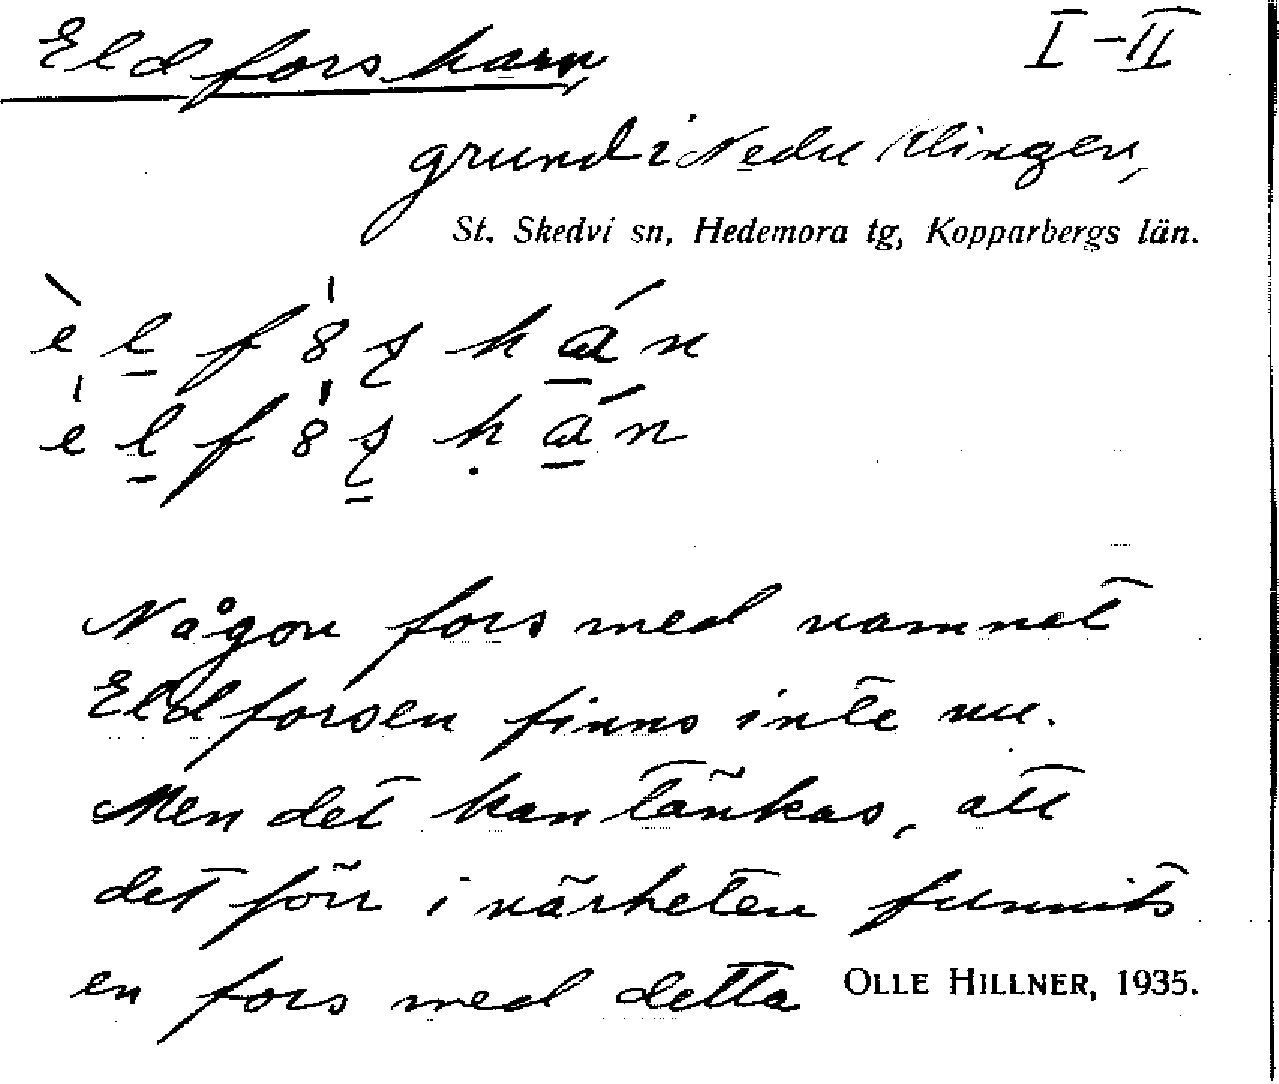 Eldforsharn, I–II
grund i Nedre Klingen,
St. Skedvi sn, Hedemora tg, Kopparbergs län.
Någon fors med namnet
Eldforsen finns inte nu.
Men det kan tänkas, att
det förr i närheten funnits
en fors med detta OLLE HILLNER, 1935.